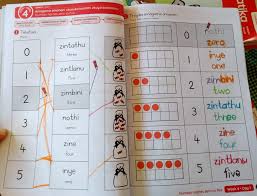 4
1
0
zintathu
three
1
zintlanu
five
2
zimbini
two
3
nothi
zero
4
zine
four
5
inye
one
0
nothi
zero
1
inye
one
2
zimbini
two
3
zintathu
three
4
zine
four
5
zintlanu
five